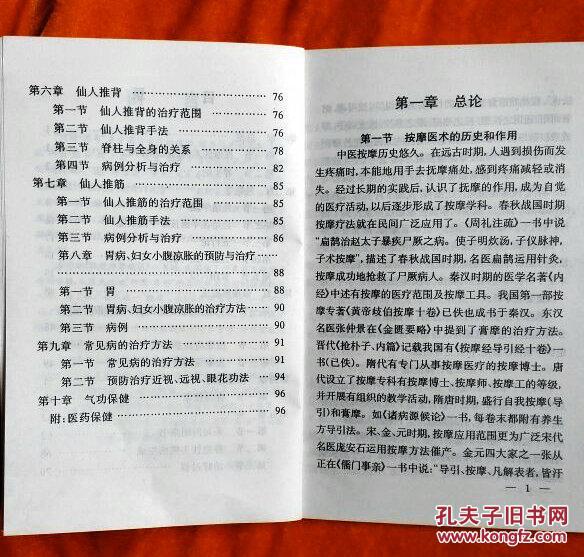 第六章 仙人推背 …………………… 76
第一节 仙人推背的治疗范围 …………… 76
第二节 仙人推背手法 …………………… 76
第三节 脊柱与全身的关系 ……………… 78
第四节 病例分析与治疗 ………………… 82
第七章 仙人推筋 …………………… 85
第一节 仙人推筋的治疗范围 …………… 85
第二节 仙人推筋手法 …………………… 85
第三节 病例分析与治疗 ………………… 86
第八章 胃病、妇女小腹凉胀的预防与治疗 ……
…………………… 88
第一节 胃 …………………… 88
第二节 胃病、妇女小腹凉胀的治疗方法 … 90
第三节 病例 …………………… 90
第九章 常见病的治疗方法 …………… 91
第一节 常见病的治疗方法 ……………… 91
第二节 预防治疗近视、远视、眼花功法 …… 94
第十章 气功保健 …………………… 96
附:医药保健 …………………… 96
第一章 总论
第一节 按摩医术的历史和作用
中医按摩历史悠久。在远古时期,人遇到损伤而发
生疼痛时,本能地用手去抚摩痛处,感到疼痛减轻或消
失。经过长期的实践后,认识了抚摩的作用,成为自觉
的医疗活动,以后逐步形成了按摩学科。春秋战国时期
按摩疗法就在民间广泛应用了。《周礼注疏》一书中说
“扁鹊治赵太子暴疾尸厥之病。使子明炊汤,子仪脉神,
子术按摩”,描述了春秋战国时期,名医扁鹊运用针灸、
按摩成功地抢救了尸厥病人。秦汉时期的医学名著《内
经》中述有按摩的医疗范围及按摩工具。我国第一部按
摩专著《黄帝歧伯按摩十卷》已佚也成书于秦汉。东汉
名医张仲景在《金匮要略》中提到了膏摩的治疗方法。
晋代《抢朴子、内篇》记载我国有《按摩经导引经十卷》一
书(已佚)。隋代有专门从事按摩医疗的按摩博士。唐
代设立了按摩专科有按摩博士、按摩师、按摩工的等级,
并开展有组织的教学活动,隋唐时期,盛行自我按摩(导
引)和膏摩。如《诸病源候论》一书,每卷末都附有养生
方导引法。宋、金、元时期,按摩应用范围更为广泛宋代
名医庞安石运用按摩方法催产。金元四大家之一张从
正在《儒门事亲》一书中说:“导引、按摩、凡解表者,皆汗
— 1 —
孔夫子旧书网